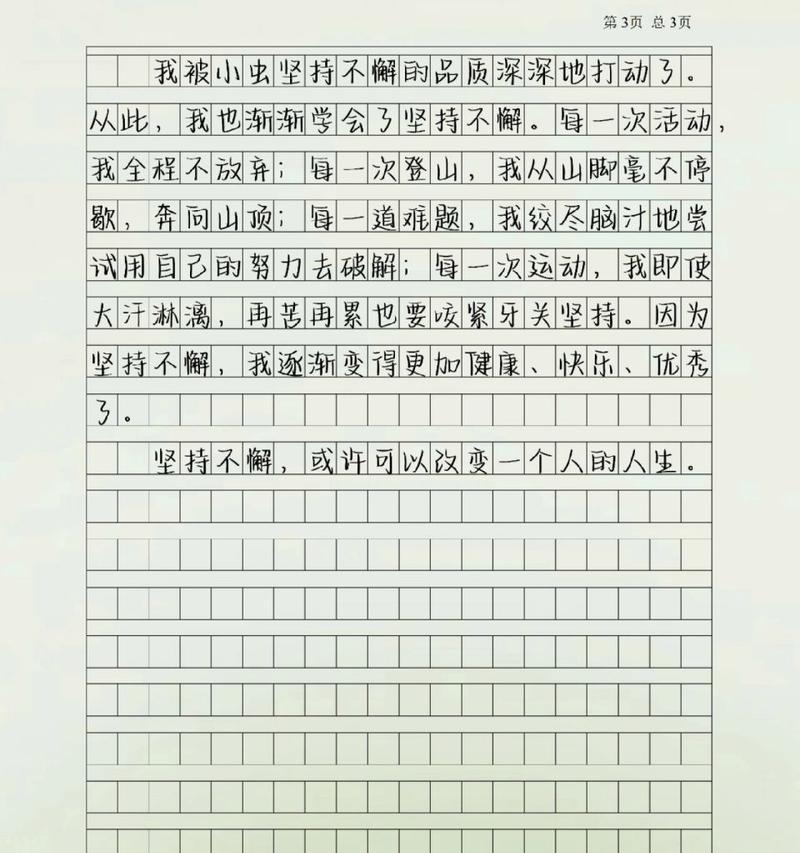 第3页 总3页
我被小虫坚持不懈的品质深深地打动了。
从此，我也渐渐学会了坚持不懈。每一次活动，
我全程不放弃；每一次登山，我从山脚毫不停
歇，奔向山顶；每一道难题，我绞尽脑汁地尝
试用自己的努力去破解；每一次运动，我即使
大汗淋漓，再苦再累也要咬紧牙关坚持。因为
坚持不懈，我逐渐变得更加健康、快乐、优秀
了。
坚持不懈，或许可以改变一个人的人生。